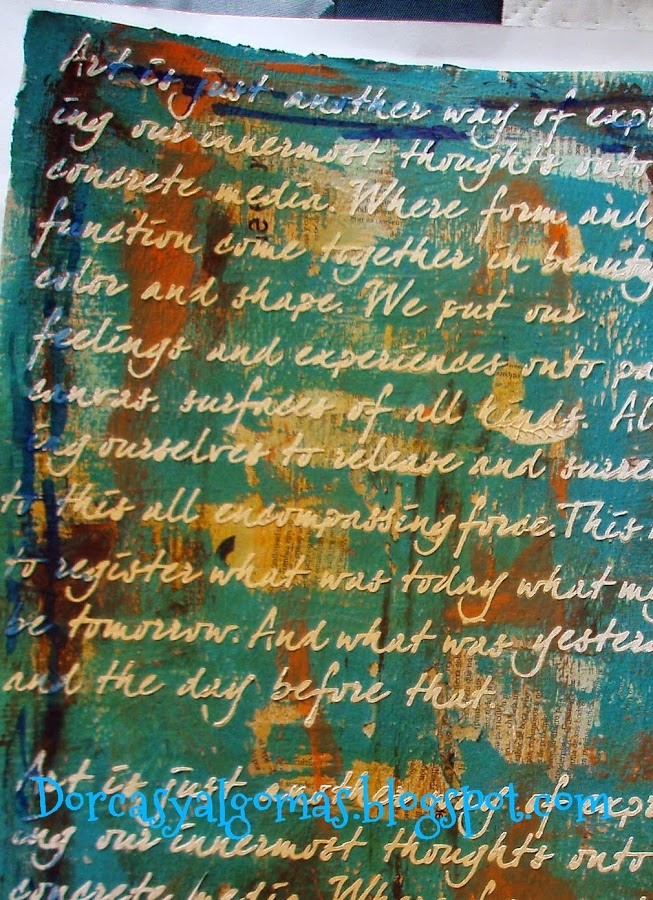 Art is just another way of expr
ing our innermost thoughts onto
concrete media. Where form and
function come together in beauty
color and shape. We put our
feelings and experiences onto pa
canvas, surfaces of all kinds. Al
ing ourselves to release and surre
to this all encompassing force. This
to register what was today what my
be tomorrow. And what was yester
and the day before that.
Art is just another way of expr
Dorcasyalgomas.blogspot.com
ing our innermost thoughts onto
concrete media. Where form an